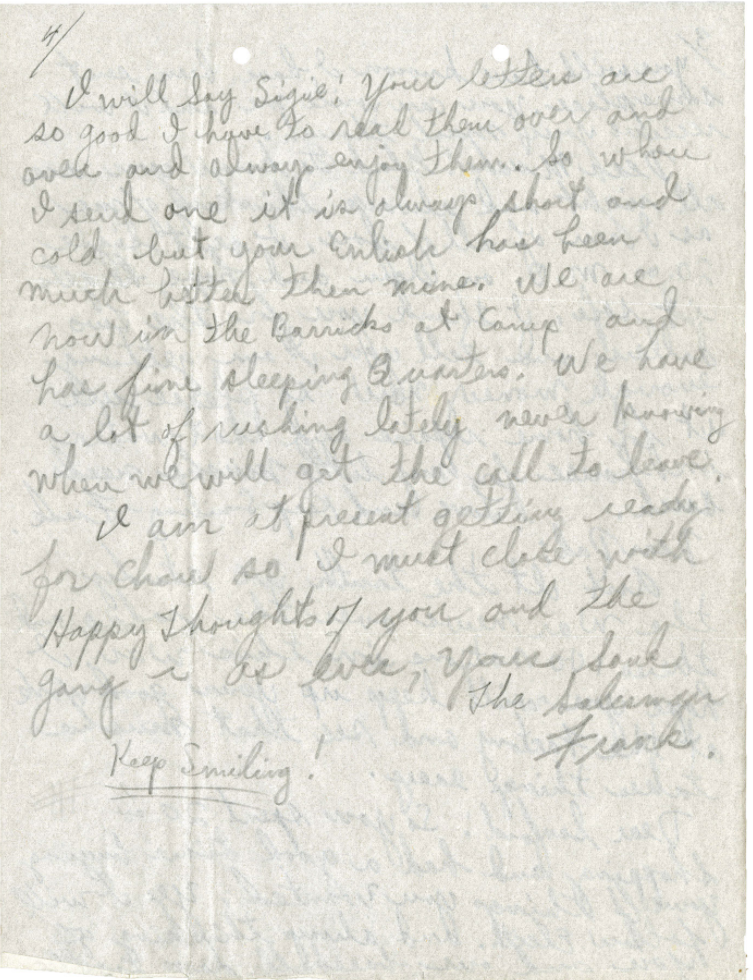 4/
I will Say Sigie! Your letters are
so good I have to read them over and
over and always enjoy them. So when
I send one it is always short and
cold but your Enlish has been
much better then mine. We are
now in the Barricks at Camp and
has fine sleeping Quarters. We have
a lot of rushing lately never knowing
when we will get the call to leave.
I am at present getting ready
for chow so I must close with
Happy Thoughts of you and the
gang as ever, Your
The Salesman
Frank.
Keep Smiling!